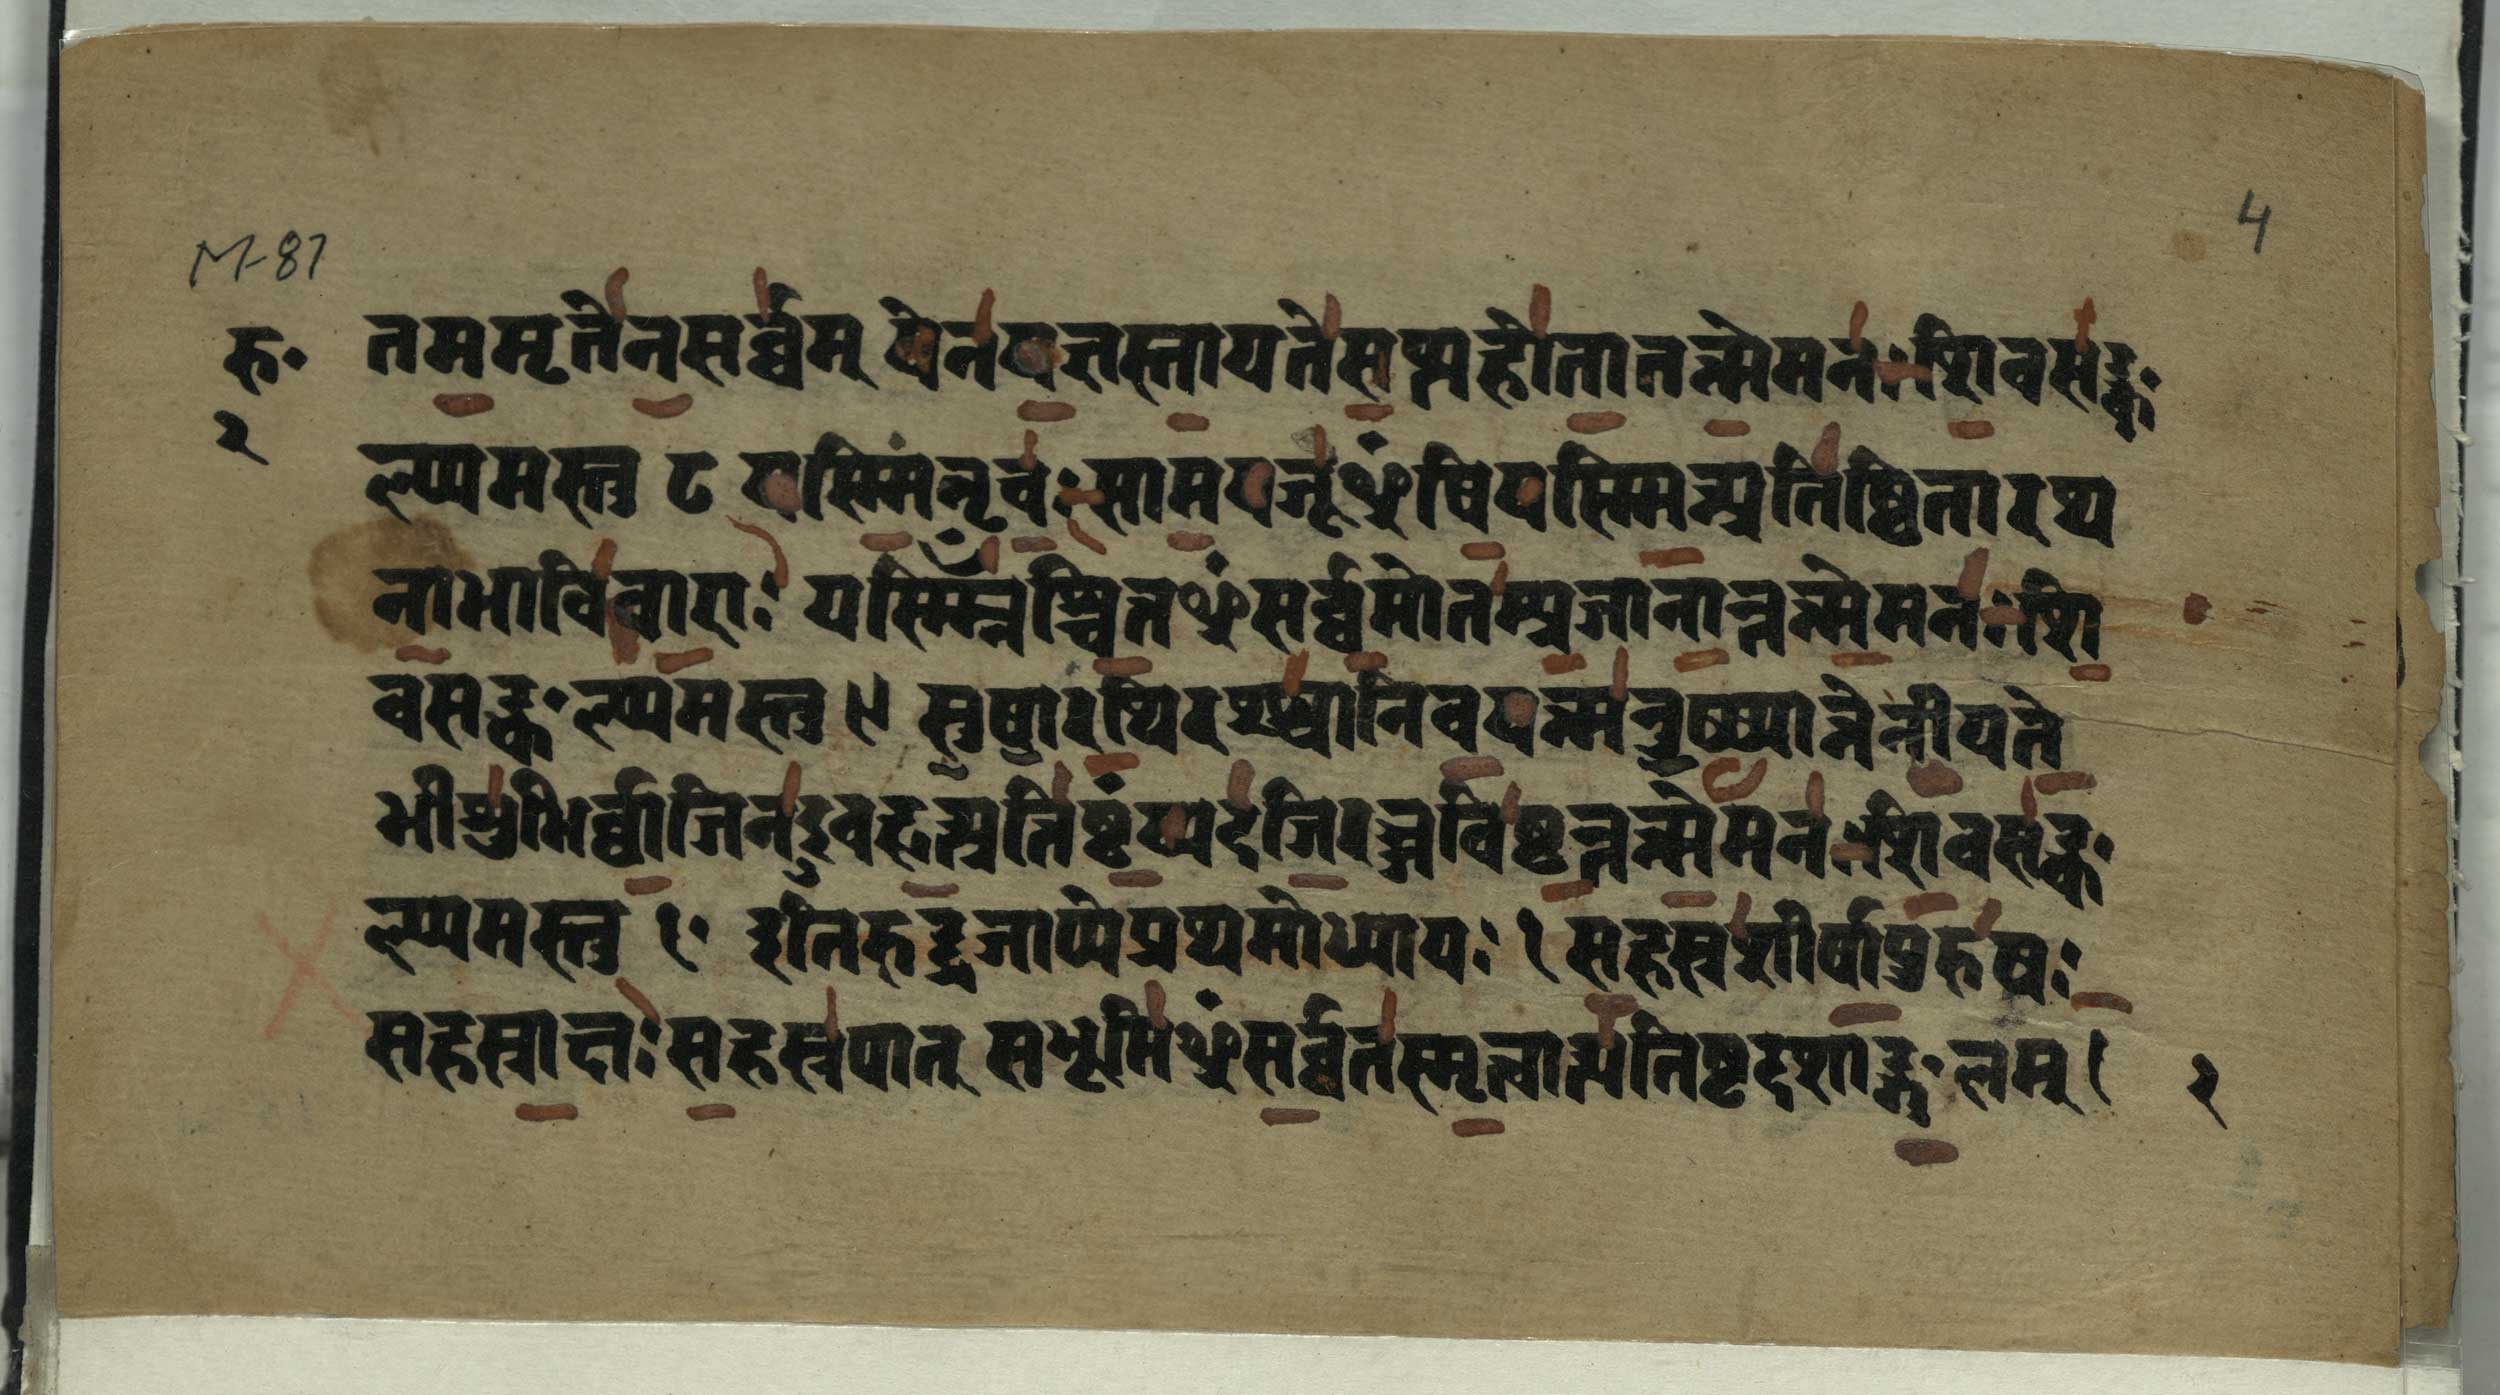 M-87
4
रु॰
२
तममृतेनसर्व्वम् येनयज्ञस्तायतेसप्तहोतातन्मेमनःशिवसङ्क
ल्प्पमस्तु ८ यस्मिंनृचःसामयजूᳩषियस्मिन्प्रतिष्ठितारथ
नाभाविवाराः यस्मिँन्नश्चित्तᳩसर्व्वमोतम्प्रजानान्तन्मेमनःशि
वसङ्कल्प्पमस्तु ९ सुषारथिरश्श्वानिवयन्मनुष्ष्यान्नेनीयते
भीशुभिर्व्वाजिनऽइवहृत्प्रतिष्ठंय्यदजिरञ्जविष्ठन्तन्मेमनःशिवसङ्क
ल्प्पमस्तु १॰ इतिरुद्रजाप्येप्रथमोध्यायः १ सहस्रशीर्षापुरुषः
सहस्राक्षःसहस्रपात् सभूमिᳩसर्व्वतस्मृत्वात्यतिष्ठद्दशाङ्गुलम् १
२